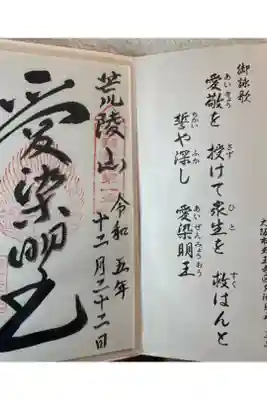 御詠歌
愛敬を授けて衆生を救はんと
あいきょう さず ひと すく
誓や深し 愛染明王
ちかい ふか あいぜんみょうおう
荒陵山
令和五年
十二月二十二日
愛染明王